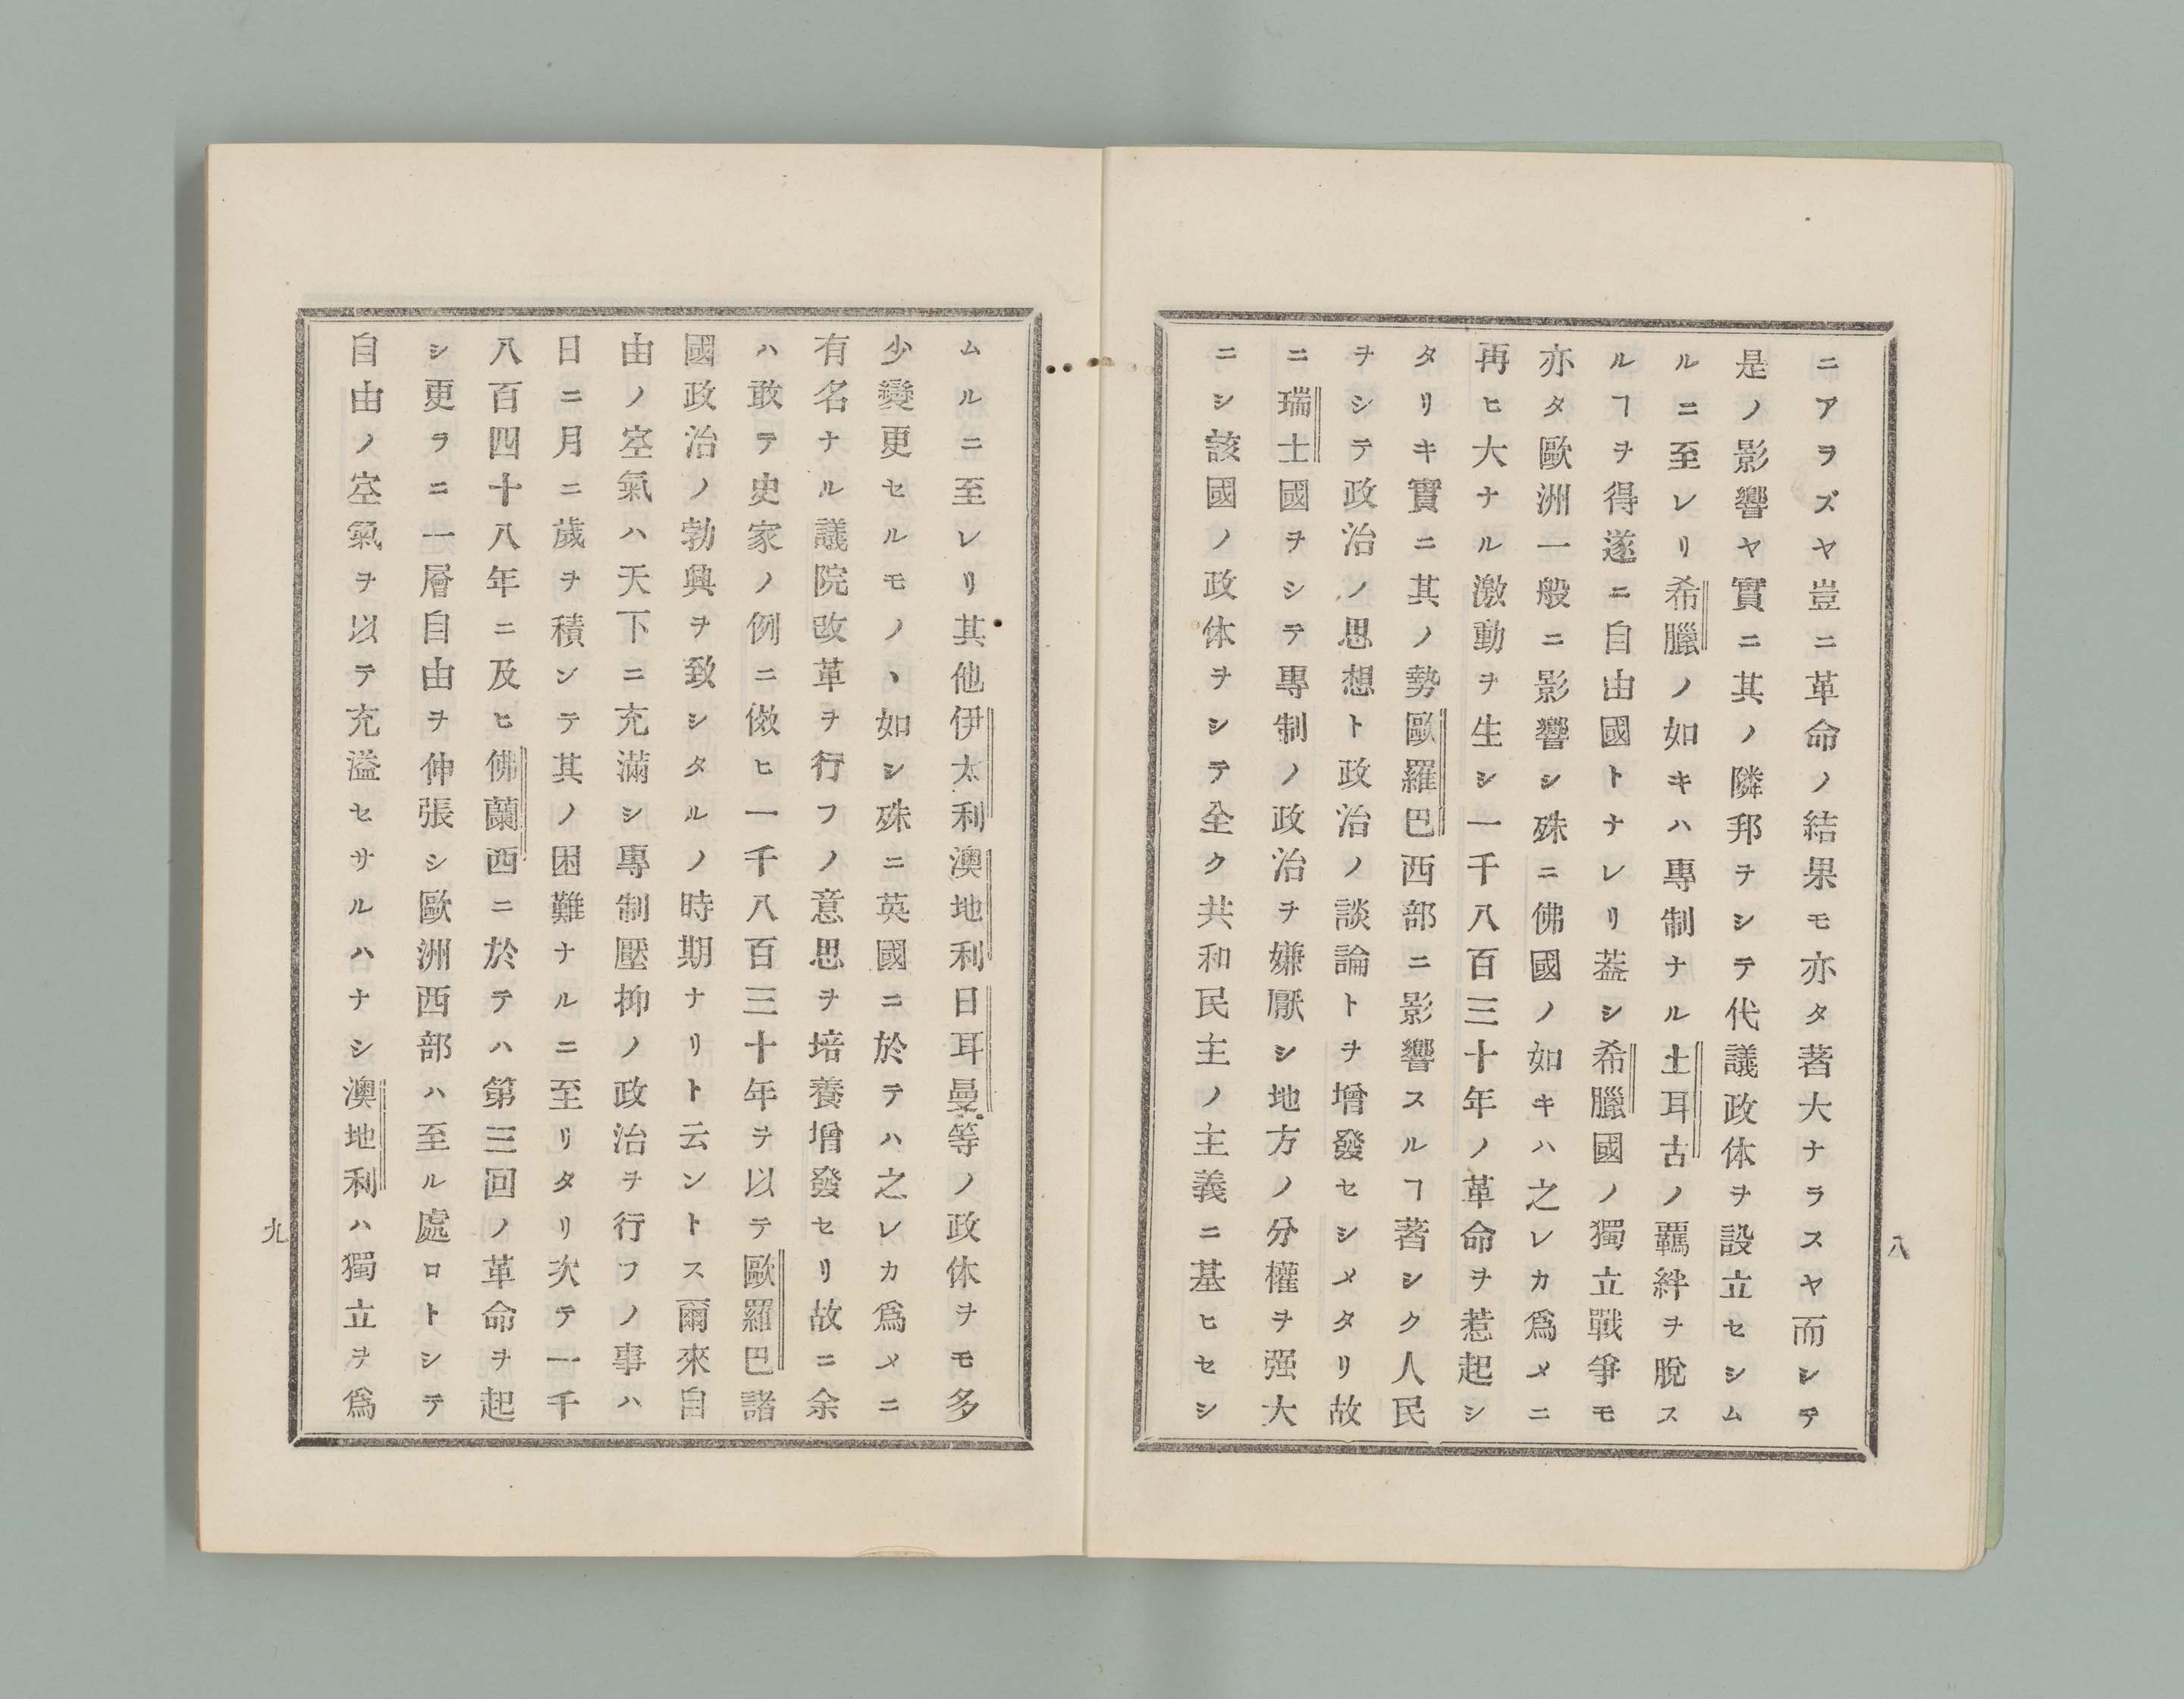 ニアヲズヤ豈ニ革命ノ結果モ亦タ著大ナラスヤ而シテ
是ノ影響ヤ實ニ其ノ隣邦ヲシテ代議政体ヲ設立セシム
ルニ至レリ希臘ノ如キハ專制ナル土耳古ノ覊絆ヲ脫ス
ルヿヲ得遂ニ自由國トナレリ葢シ希臘國ノ獨立戰爭モ
亦タ歐洲一般ニ影響シ殊ニ佛國ノ如キハ之レカ爲メニ
再ヒ大ナル激動ヲ生シ一千八百三十年ノ革命ヲ惹起シ
タリキ實ニ其ノ勢歐羅巴西部ニ影響スルヿ著シク人民
ヲシテ政治ノ思想ト政治ノ談論トヲ增發セシメタリ故
ニ瑞士國ヲシテ專制ノ政治ヲ嫌厭シ地方ノ分權ヲ强大
ニシ該國ノ政体ヲシテ全ク共和民主ノ主義ニ基ヒセシ
八
ムルニ至レリ其他伊太利澳地利日耳曼等ノ政体ヲモ多
少變更セルモノヽ如シ殊ニ英國ニ於テハ之レカ爲メニ
有名ナル議院改革ヲ行フノ意思ヲ培養增發セリ故ニ余
ハ敢テ史家ノ例ニ傚ヒ一千八百三十年ヲ以テ歐羅巴諸
國政治ノ勃興ヲ致シタルノ時期ナリト云ントス爾來自
由ノ空氣ハ天下ニ充滿シ專制壓抑ノ政治ヲ行フノ事ハ
日ニ月ニ歲ヲ積ンテ其ノ困難ナルニ至リタリ次テ一千
八百四十八年ニ及ヒ佛蘭西ニ於テハ第三回ノ革命ヲ起
シ更ラニ一層自由ヲ伸張シ歐洲西部ハ至ル處ロトシテ
自由ノ空氣ヲ以テ充溢セサルハナシ澳地利ハ獨立ヲ爲
九